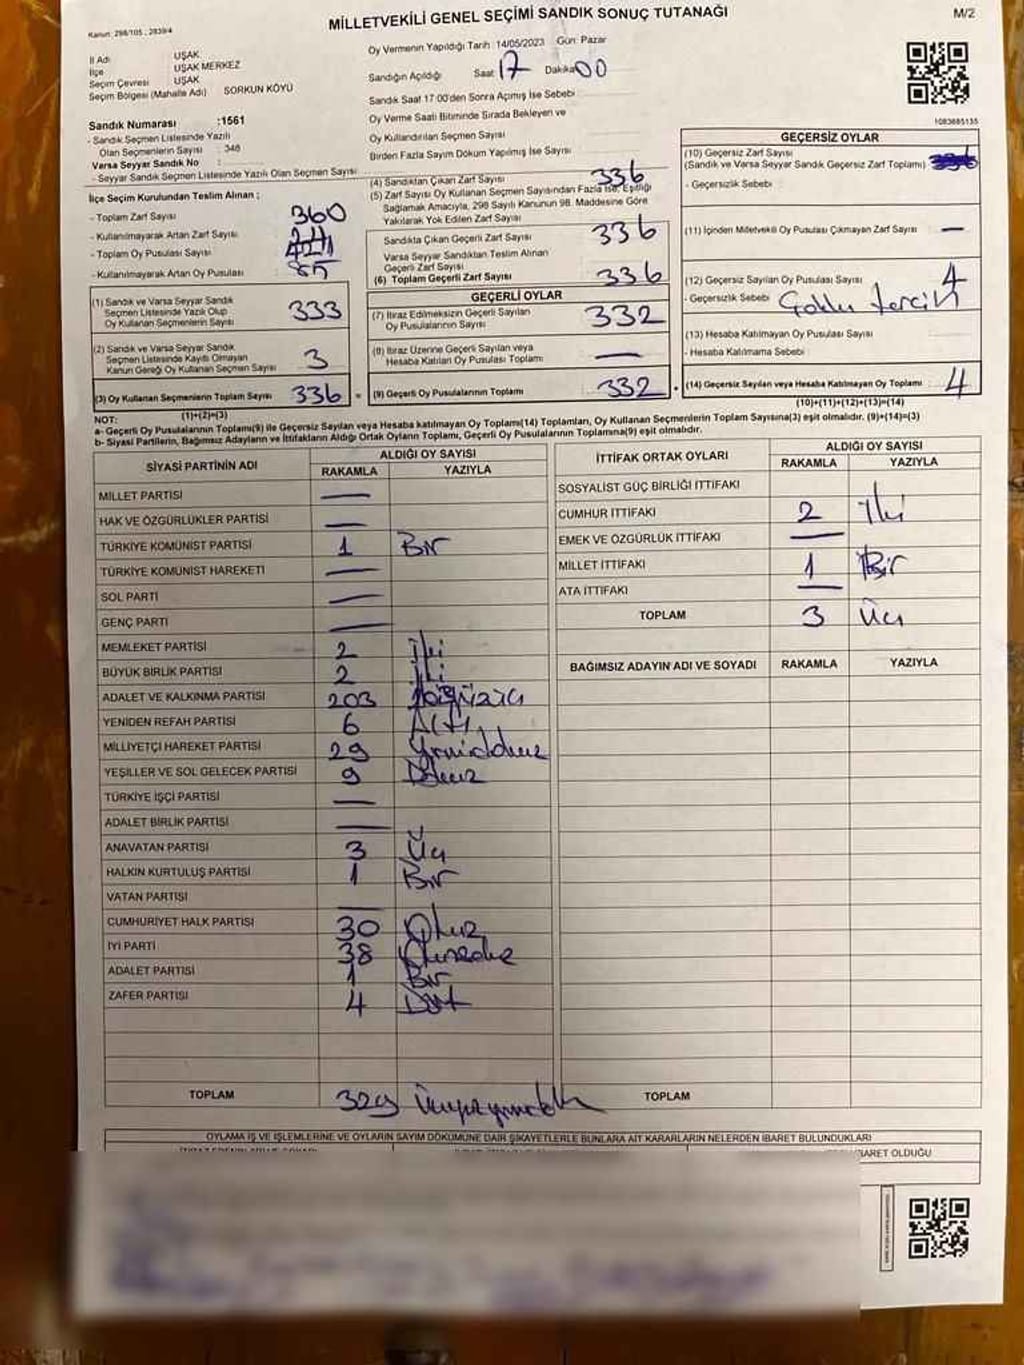 MİLLETVEKİLİ GENEL SEÇİMİ SANDIK SONUÇ TUTANAĞI
M/2
Kanun: 298/105 , 2839/4
İl Adı UŞAK
İlçe UŞAK MERKEZ
Seçim Çevresi UŞAK
Seçim Bölgesi (Mahalle Adı) SORKUN KÖYÜ
Sandık Numarası :1561
- Sandık Seçmen Listesinde Yazılı
Olan Seçmenlerin Sayısı : 346
Varsa Seyyar Sandık No :
- Seyyar Sandık Listesinde Yazılı Olan Seçmen Sayısı
Oy Vermenin Yapıldığı Tarih: 14/05/2023 Gün: Pazar
Sandığın Açıldığı Saat 17 Dakika 00
Sandık Saat 17:00'den Sonra Açımış İse Sebebi
Oy Verme Saati Bitiminde Sırada Bekleyen ve
Oy Kullandırılan Seçmen Sayısı
Birden Fazla Sayım Döküm Yapılmış İse Sayısı
1083685135
İlçe Seçim Kurulundan Teslim Alınan ;
- Toplam Zarf Sayısı 360
- Kullanılmayarak Artan Zarf Sayısı
- Toplam Oy Pusulası Sayısı
- Kullanılmayarak Artan Oy Pusulası
(1) Sandık ve Varsa Seyyar Sandık
Seçmen Listesinde Yazılı Olup
Oy Kullanan Seçmenlerin Sayısı 333
(2) Sandık ve Varsa Seyyar Sandık
Seçmen Listesinde Kayıtlı Olmayan
Kanun Gereği Oy Kullanan Seçmen Sayısı 3
(3) Oy Kullanan Seçmenlerin Toplam Sayısı 336 =
(1)+(2)=(3)
(4) Sandıktan Çıkan Zarf Sayısı 336
(5) Zarf Sayısı Oy Kullanan Seçmen Sayısından Fazla İse, Eşitliği
Sağlamak Amacıyla, 298 Sayılı Kanunun 98. Maddesine Göre
Yakılarak Yok Edilen Zarf Sayısı
Sandıkta Çıkan Geçerli Zarf Sayısı 336
Varsa Seyyar Sandıktan Teslim Alınan
Geçerli Zarf Sayısı
(6) Toplam Geçerli Zarf Sayısı 336
GEÇERLİ OYLAR
(7) İtiraz Edilmeksizin Geçerli Sayılan
Oy Pusulalarının Sayısı 332
(8) İtiraz Üzerine Geçerli Sayılan veya
Hesaba Katılan Oy Pusulası Toplamı —
(9) Geçerli Oy Pusulalarının Toplamı 332
GEÇERSİZ OYLAR
(10) Geçersiz Zarf Sayısı
(Sandık ve Varsa Seyyar Sandık Geçersiz Zarf Toplamı)
- Geçersizlik Sebebi :
(11) İçinden Milletvekili Oy Pusulası Çıkmayan Zarf Sayısı —
(12) Geçersiz Sayılan Oy Pusulası Sayısı 4
- Geçersizlik Sebebi Çoklu tercih
(13) Hesaba Katılmayan Oy Pusulası Sayısı
- Hesaba Katılmama Sebebi
(14) Geçersiz Sayılan veya Hesaba Katılmayan Oy Toplamı 4
(10)+(11)+(12)+(13)=(14)
NOT:
a- Geçerli Oy Pusulalarının Toplamı(9) ile Geçersiz Sayılan veya Hesaba katılmayan Oy Toplamı(14) Toplamları, Oy Kullanan Seçmenlerin Toplam Sayısına(3) eşit olmalıdır. (9)+(14)=(3)
b- Siyasi Partilerin, Bağımsız Adayların ve İttifakların Aldığı Ortak Oyların Toplamı, Geçerli Oy Pusulalarının Toplamına(9) eşit olmalıdır.
SİYASİ PARTİNİN ADI ALDIĞI OY SAYISI
RAKAMLA YAZIYLA
MİLLET PARTİSİ —
HAK VE ÖZGÜRLÜKLER PARTİSİ —
TÜRKİYE KOMÜNİST PARTİSİ 1 Bir
TÜRKİYE KOMÜNİST HAREKETİ —
SOL PARTİ —
GENÇ PARTİ —
MEMLEKET PARTİSİ 2 İki
BÜYÜK BİRLİK PARTİSİ 2 İki
ADALET VE KALKINMA PARTİSİ 203
YENİDEN REFAH PARTİSİ 6 Altı
MİLLİYETÇİ HAREKET PARTİSİ 29 Yirmidokuz
YEŞİLLER VE SOL GELECEK PARTİSİ 9 Dokuz
TÜRKİYE İŞÇİ PARTİSİ —
ADALET BİRLİK PARTİSİ —
ANAVATAN PARTİSİ 3 Üç
HALKIN KURTULUŞ PARTİSİ 1 Bir
VATAN PARTİSİ —
CUMHURİYET HALK PARTİSİ 30 Otuz
İYİ PARTİ 38 Otuzsekiz
ADALET PARTİSİ 1 Bir
ZAFER PARTİSİ 4 Dört
TOPLAM 329
İTTİFAK ORTAK OYLARI ALDIĞI OY SAYISI
RAKAMLA YAZIYLA
SOSYALİST GÜÇ BİRLİĞİ İTTİFAKI
CUMHUR İTTİFAKI 2 İki
EMEK VE ÖZGÜRLÜK İTTİFAKI —
MİLLET İTTİFAKI 1 Bir
ATA İTTİFAKI —
TOPLAM 3 Üç
BAĞIMSIZ ADAYIN ADI VE SOYADI RAKAMLA YAZIYLA
TOPLAM
OYLAMA İŞ VE İŞLEMLERİNE VE OYLARIN SAYIM DÖKÜMÜNE DAİR ŞİKAYETLERLE BUNLARA AİT KARARLARIN NELERDEN İBARET BULUNDUKLARI
İBARET OLDUĞU